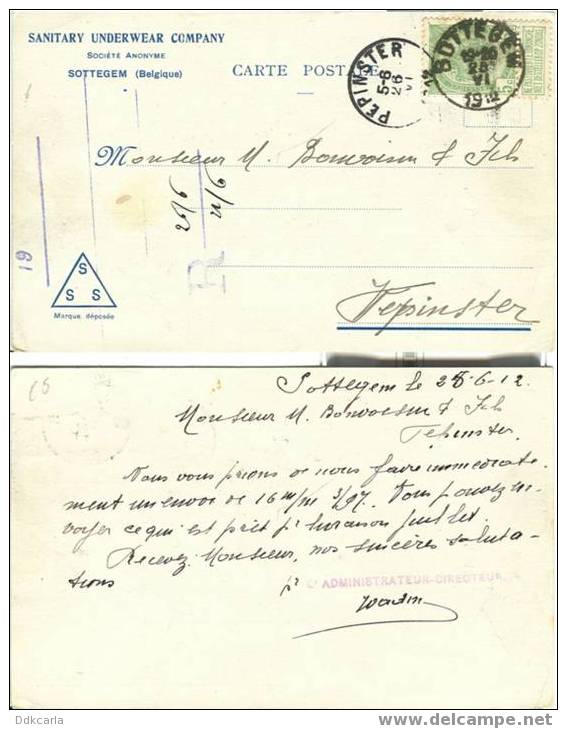 SANITARY UNDERWEAR COMPANY
SOCIÉTÉ ANONYME
SOTTEGEM (Belgique)
CARTE POSTALE
PEPINSTER
5-6
26
VI
SOTTEGEM
25
VI
1912
Monsieur M. Bonvoisin & Fils
26/6
R 6/12
19
S
S S
Marque déposée
Pepinster
Sottegem le 25-6-12
Monsieur M. Bonvoisin & Fils
Pepinster.
Nous vous prions de nous faire immédiate
ment un envoi de 16 m/m 3/27. Vous pouvez en-
voyer ce qui est prêt pr livraison juillet.
Recevez, Monsieur, nos sincères saluta-
tions
pr L'ADMINISTRATEUR-DIRECTEUR
Ddkcarla
www.delcampe.net